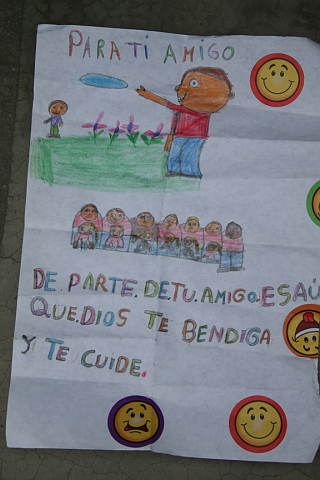 PARA TI AMIGO
DE.PARTE.DE.TU.AMIGO.ESAÚ
QUE.DIOS TE BENDIGA
Y TE CUIDE.